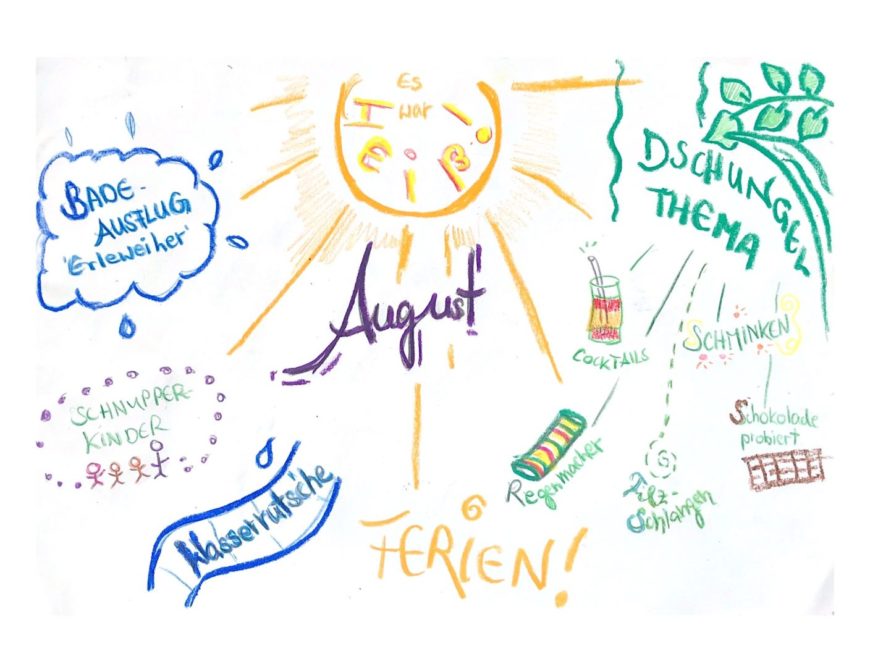 Es
war
HEiß!
BADE-
AUSFLUG
'Erleweiher'
DSCHUNGEL
THEMA
August
COCKTAILS
SCHMINKEN
SCHNUPPER-
KINDER
Schokolade
probiert
Regenmacher
Filz-
Schlangen
Wasserrutsche
FERIEN!